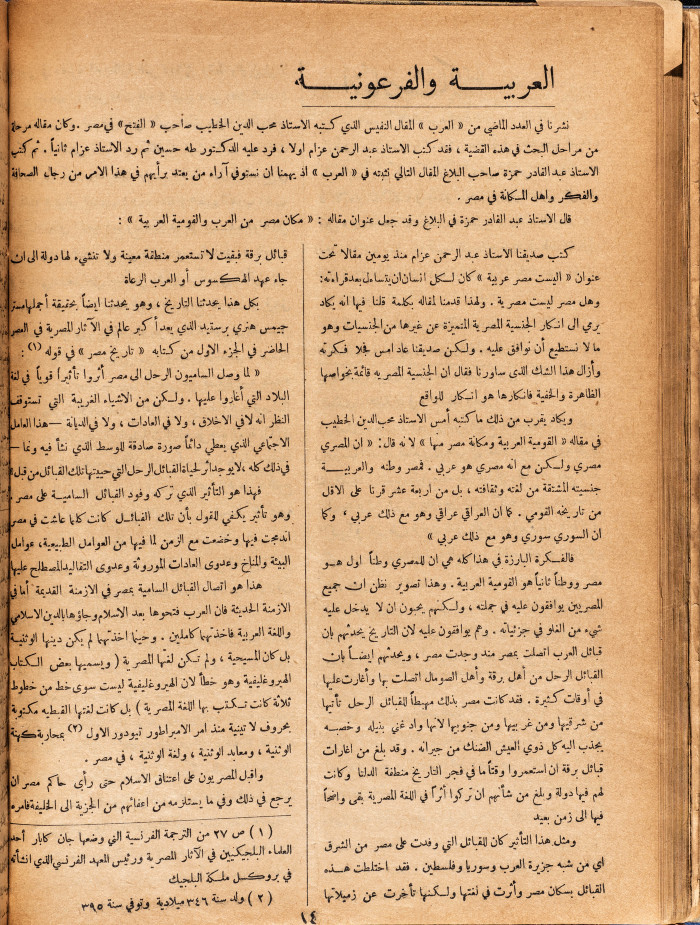 العربيـــة والفرعونيـــة
نشرنا في العدد الماضي من « العرب » المقال النفيس الذي كتبه الاستاذ محب الدين الخطيب صاحب « الفتح » في مصر . وكان مقاله مرحلة
من مراحل البحث في هذه القضية ، فقد كتب الاستاذ عبد الرحمن عزام اولا ، فرد عليه الدكتور طه حسين ثم رد الاستاذ عزام ثانياً . ثم كتب
الاستاذ عبد القادر حمزة صاحب البلاغ المقال التالي نثبته في « العرب » اذ يهمنا ان نستوفي آراء من يعتد برأيهم في هذا الامر من رجال الصحافة
والفكر واهل المكانة في مصر .
قال الاستاذ عبد القادر حمزة في البلاغ وقد جعل عنوان مقاله : « مكان مصر من العرب والقومية العربية » :
كتب صديقنا الاستاذ عبد الرحمن عزام منذ يومين مقالا تحت
عنوان « اليست مصر عربية » كان لكل انسان ان يتساءل بعد قراءته :
وهل مصر ليست مصرية . ولهذا قدمنا لمقاله بكلمة قلنا فيها انه يكاد
يرمي الى انكار الجنسية المصرية المتميزة عن غيرها من الجنسيات وهو
ما لا نستطيع أن نوافق عليه . ولكن صديقنا عاد امس فجلا فكرته
وأزال هذا الشك الذي ساورنا فقال ان الجنسية المصريه قائمة بخواصها
الظاهرة والخفية فانكارها هو انكار للواقع
ويكاد يقرب من ذلك ما كتبه أمس الاستاذ محب الدين الخطيب
في مقاله « القومية العربية ومكانة مصر منها » لانه قال : « ان المصري
مصري ولكن مع انه مصري هو عربي . فمصر وطنه والعربيـة
جنسيته المشتقة من لغته وثقافته ، بل من اربعة عشر قرنا على الاقل
من تاريخه القومي . كما ان العراقي عراقي وهو مع ذلك عربي ، وكما
ان السوري سوري وهو مع ذلك عربي »
فالفكرة البارزة في هذا كله هي ان للمصري وطناً اول هو
مصر ووطناً ثانياً هو القومية العربية . وهذا تصوير نظن ان جميع
المصريين يوافقون عليه في جملته ، ولكنهم يحبون ان لا يدخل عليه
شيء من الغلو في جزئياته . وهم يوافقون عليه لان التاريخ يحدثهم بان
قبائل العرب اتصلت بمصر منذ وجدت مصر ، ويحدثهم ايضاً بان
القبائل الرحل من أهل برقة وأهل الصومال اتصلت بها وأغارت عليها
في أوقات كثيرة . فقد كانت مصر بذلك مهبطاً للقبائل الرحل تأتيها
من شرقيها ومن غربيها ومن جنوبيها لانها واد غني بنيله وخصبه
يجذب اليه كل ذوي العيش الضنك من جيرانه . وقد بلغ من اغارات
قبائل برقة ان استعمروا وقتاً ما في فجر التاريخ منطقة الدلتا وكانت
لهم فيها دولة وبلغ من شأنهم ان تركوا أثراً في اللغة المصرية بقى واضحاً
فيها الى زمن بعيد
ومثل هذا التأثير كان للقبائل التي وفدت على مصر من الشرق
اي من شبه جزيرة العرب وسوريا وفلسطين . فقد اختلطت هذه
القبائل بسكان مصر وأثرت في لغتها ولكنها تأخرت عن زميلاتها
قبائل برقة فبقيت لا تستعمر منطقة معينة ولا تنشيء لها دولة الى ان
جاء عهد الهكسوس أو العرب الرعاة
بكل هذا يحدثنا التاريخ ، وهو يحدثنا ايضاً بحقيقة أجملها مستر
جيمس هنري برستيد الذي يعد أكبر عالم في الآثار المصرية في العصر
الحاضر في الجزء الاول من كتابه « تاريخ مصر » في قوله (١) :
« لما وصل الساميون الرحل الى مصر أثروا تأثيراً قوياً في لغة
البلاد التي أغاروا عليها . ولكن من الاشياء الغريبة التي تستوقف
النظر انه لا في الاخلاق ، ولا في العادات ، ولا في الديانة — هذا العامل
الاجتماعي الذي يعطي دائماً صورة صادقة للوسط الذي نشأ فيه ونما —
في ذلك كله ، لا يوجد أثر لحياة القبائل الرحل التي حييتها تلك القبائل من قبل »
فهذا هو التأثير الذي تركه وفود القبائل السامية على مصر .
وهو تأثير يكفي للقول بأن تلك القبائل كانت كلما عاشت في مصر
اندمجت فيها وخضعت مع الزمن لما فيها من العوامل الطبيعية ، عوامل
البيئة والمناخ وعدوى العادات الموروثة وعدوى التقاليد المصطلح عليها
هذا هو اتصال القبائل السامية بمصر في الازمنة القديمة أما في
الازمنة الحديثة فان العرب فتحوها بعد الاسلام وجاؤها بالدين الاسلامي
واللغة العربية فاخذتهما كاملين . وحينما اخذتهما لم يكن دينها الوثنية
بل كان المسيحية ، ولم تكن لغتها المصرية ( ويسميها بعض الكتاب
الهيروغليفية وهو خطأ لان الهيروغليفية ليست سوى خط من خطوط
ثلاثة كانت تكتب بها اللغة المصرية ) بل كانت لغتها القبطيه مكتوبة
بحروف لاتينية منذ امر الامبراطور تيودور الاول (٢) بمحاربة كهنة
الوثنية ، ومعابد الوثنية ، ولغة الوثنية ، في مصر .
واقبل المصريون على اعتناق الاسلام حتى رأى حاكم مصر ان
يرجع في ذلك وفي ما يستلزمه من اعفائهم من الجزية الى الخليفة فامره
( ١ ) ص ٢٧ من الترجمة الفرنسية التي وضعها جان كابار أحد
العلماء البلجيكيين في الآثار المصرية ورئيس المعهد الفرنسي الذي انشأته
في بروكسل ملكة البلجيك
( ٢ ) ولد سنة ٣٤٦ ميلادية وتوفي سنة ٣٩٥
١٤